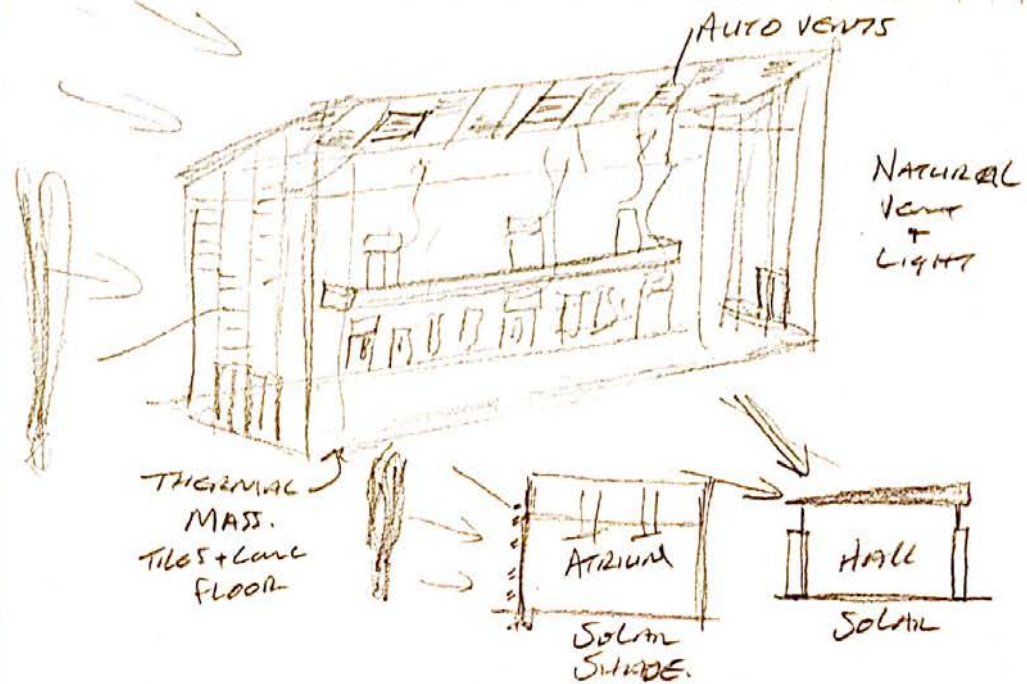 AUTO VENTS
NATURAL
VENT
+
LIGHT
THERMAL
MASS.
TILES + CONC
FLOOR
ATRIUM
SOLAR
SHADE.
HALL
SOLAR